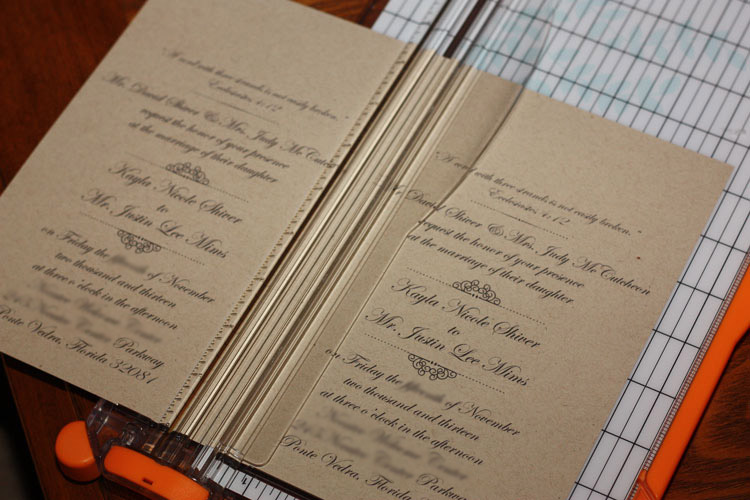 "A cord with three strands is not easily broken."
Ecclesiastes 4:12
Mr. David Shiver & Mrs. Judy McCutcheon
request the honor of your presence
at the marriage of their daughter
Kayla Nicole Shiver
to
Mr. Justin Lee Mims
on Friday the of November
two thousand and thirteen
at three o'clock in the afternoon
Parkway
Ponte Vedra, Florida 32081
"A cord with three strands is not easily broken."
Ecclesiastes 4:12
David Shiver & Mrs. Judy McCutcheon
request the honor of your presence
at the marriage of their daughter
Kayla Nicole Shiver
to
Mr. Justin Lee Mims
on Friday the of November
two thousand and thirteen
at three o'clock in the afternoon
Parkway
Ponte Vedra, Florida